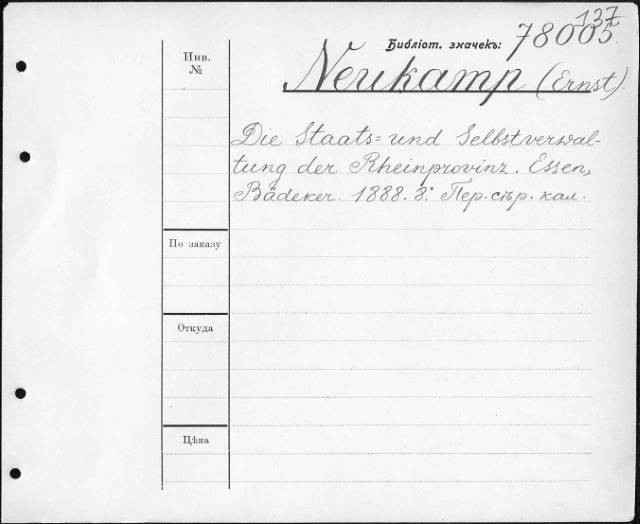 137
Библіот. значекъ: 78005.
Инв. №
Neukamp (Ernst).
Die Staats= und Selbstverwal-
tung der Rheinprovinz. Essen,
Bädeker. 1888. 8.° Пер. сѣр. кал.
По заказу
Откуда
Цѣна